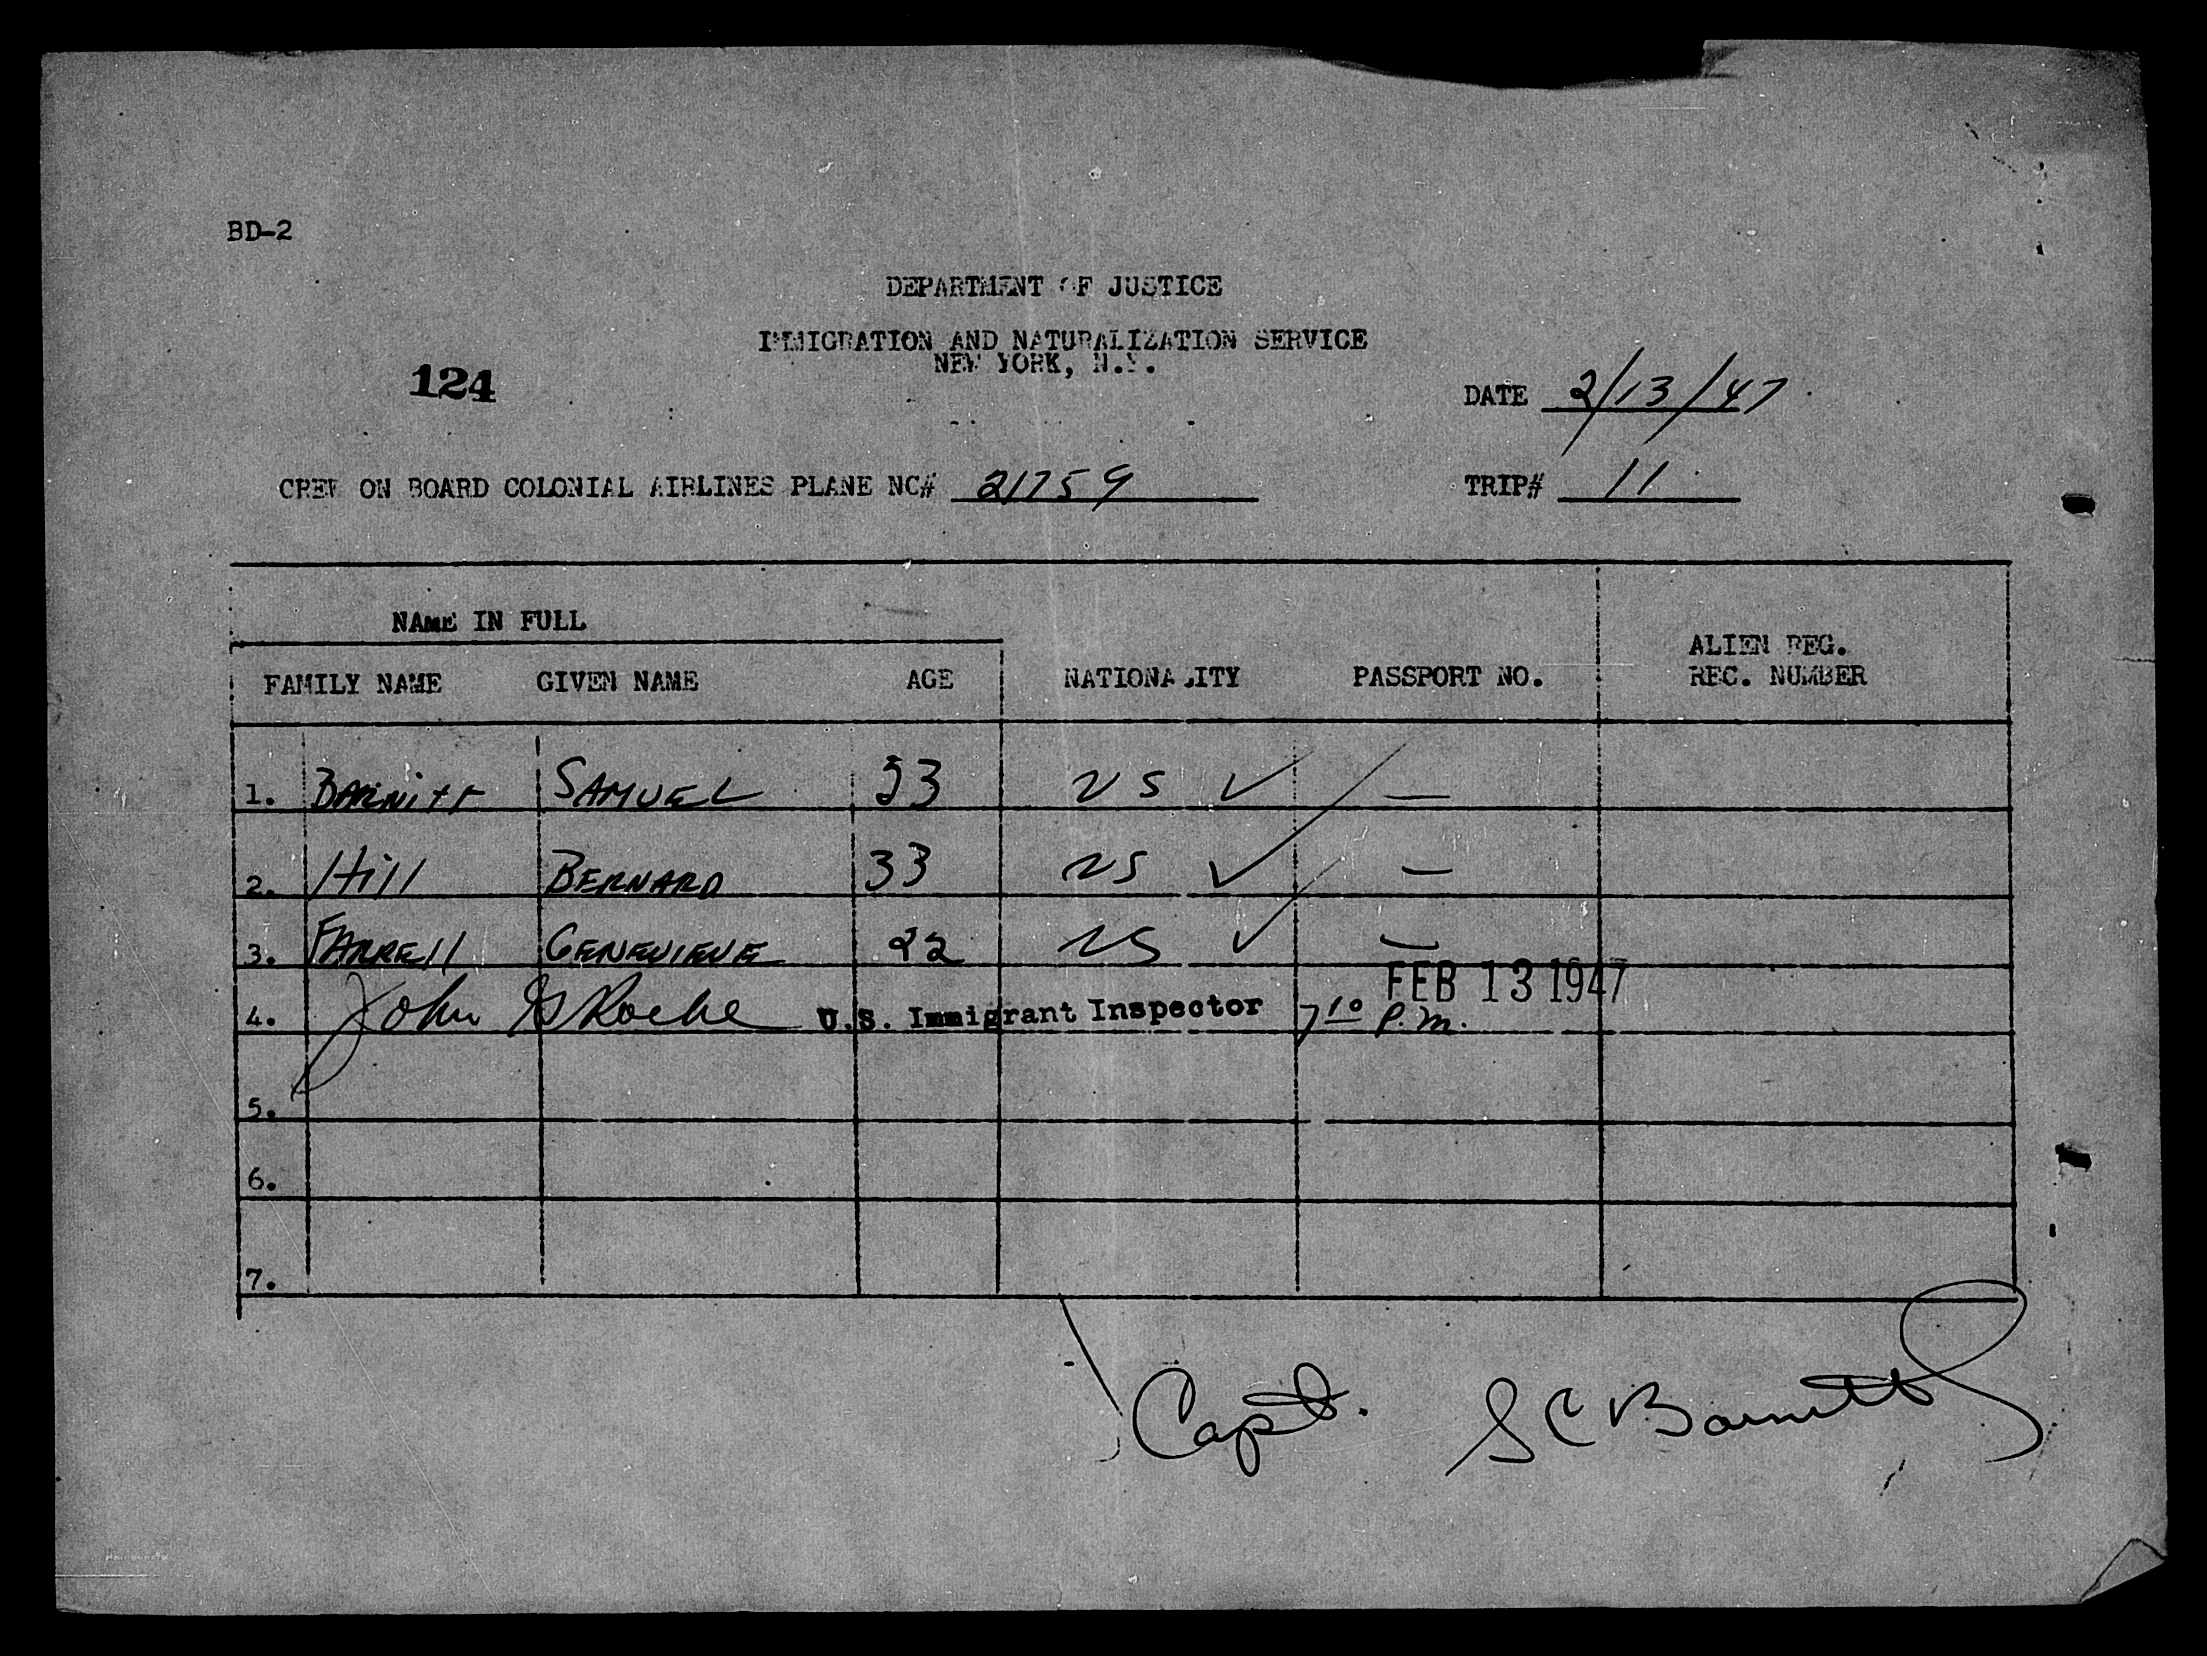 BD-2
DEPARTMENT OF JUSTICE
IMMIGRATION AND NATURALIZATION SERVICE
NEW YORK, N.Y.
124
DATE 2/13/47
CREW ON BOARD COLONIAL AIRLINES PLANE NC# 21759
TRIP# 11
NAME IN FULL
FAMILY NAME GIVEN NAME AGE NATIONALITY PASSPORT NO. ALIEN REG. REC. NUMBER
1. BARNITT SAMUEL 33 US ✓ —
2. Hill BERNARD 33 US ✓ —
3. FARRELL GENEVIEVE 22 US ✓ —
FEB 13 1947
4. John G Roche U.S. Immigrant Inspector 7 10 P.M.
5.
6.
7.
Capt. S C Barnitt